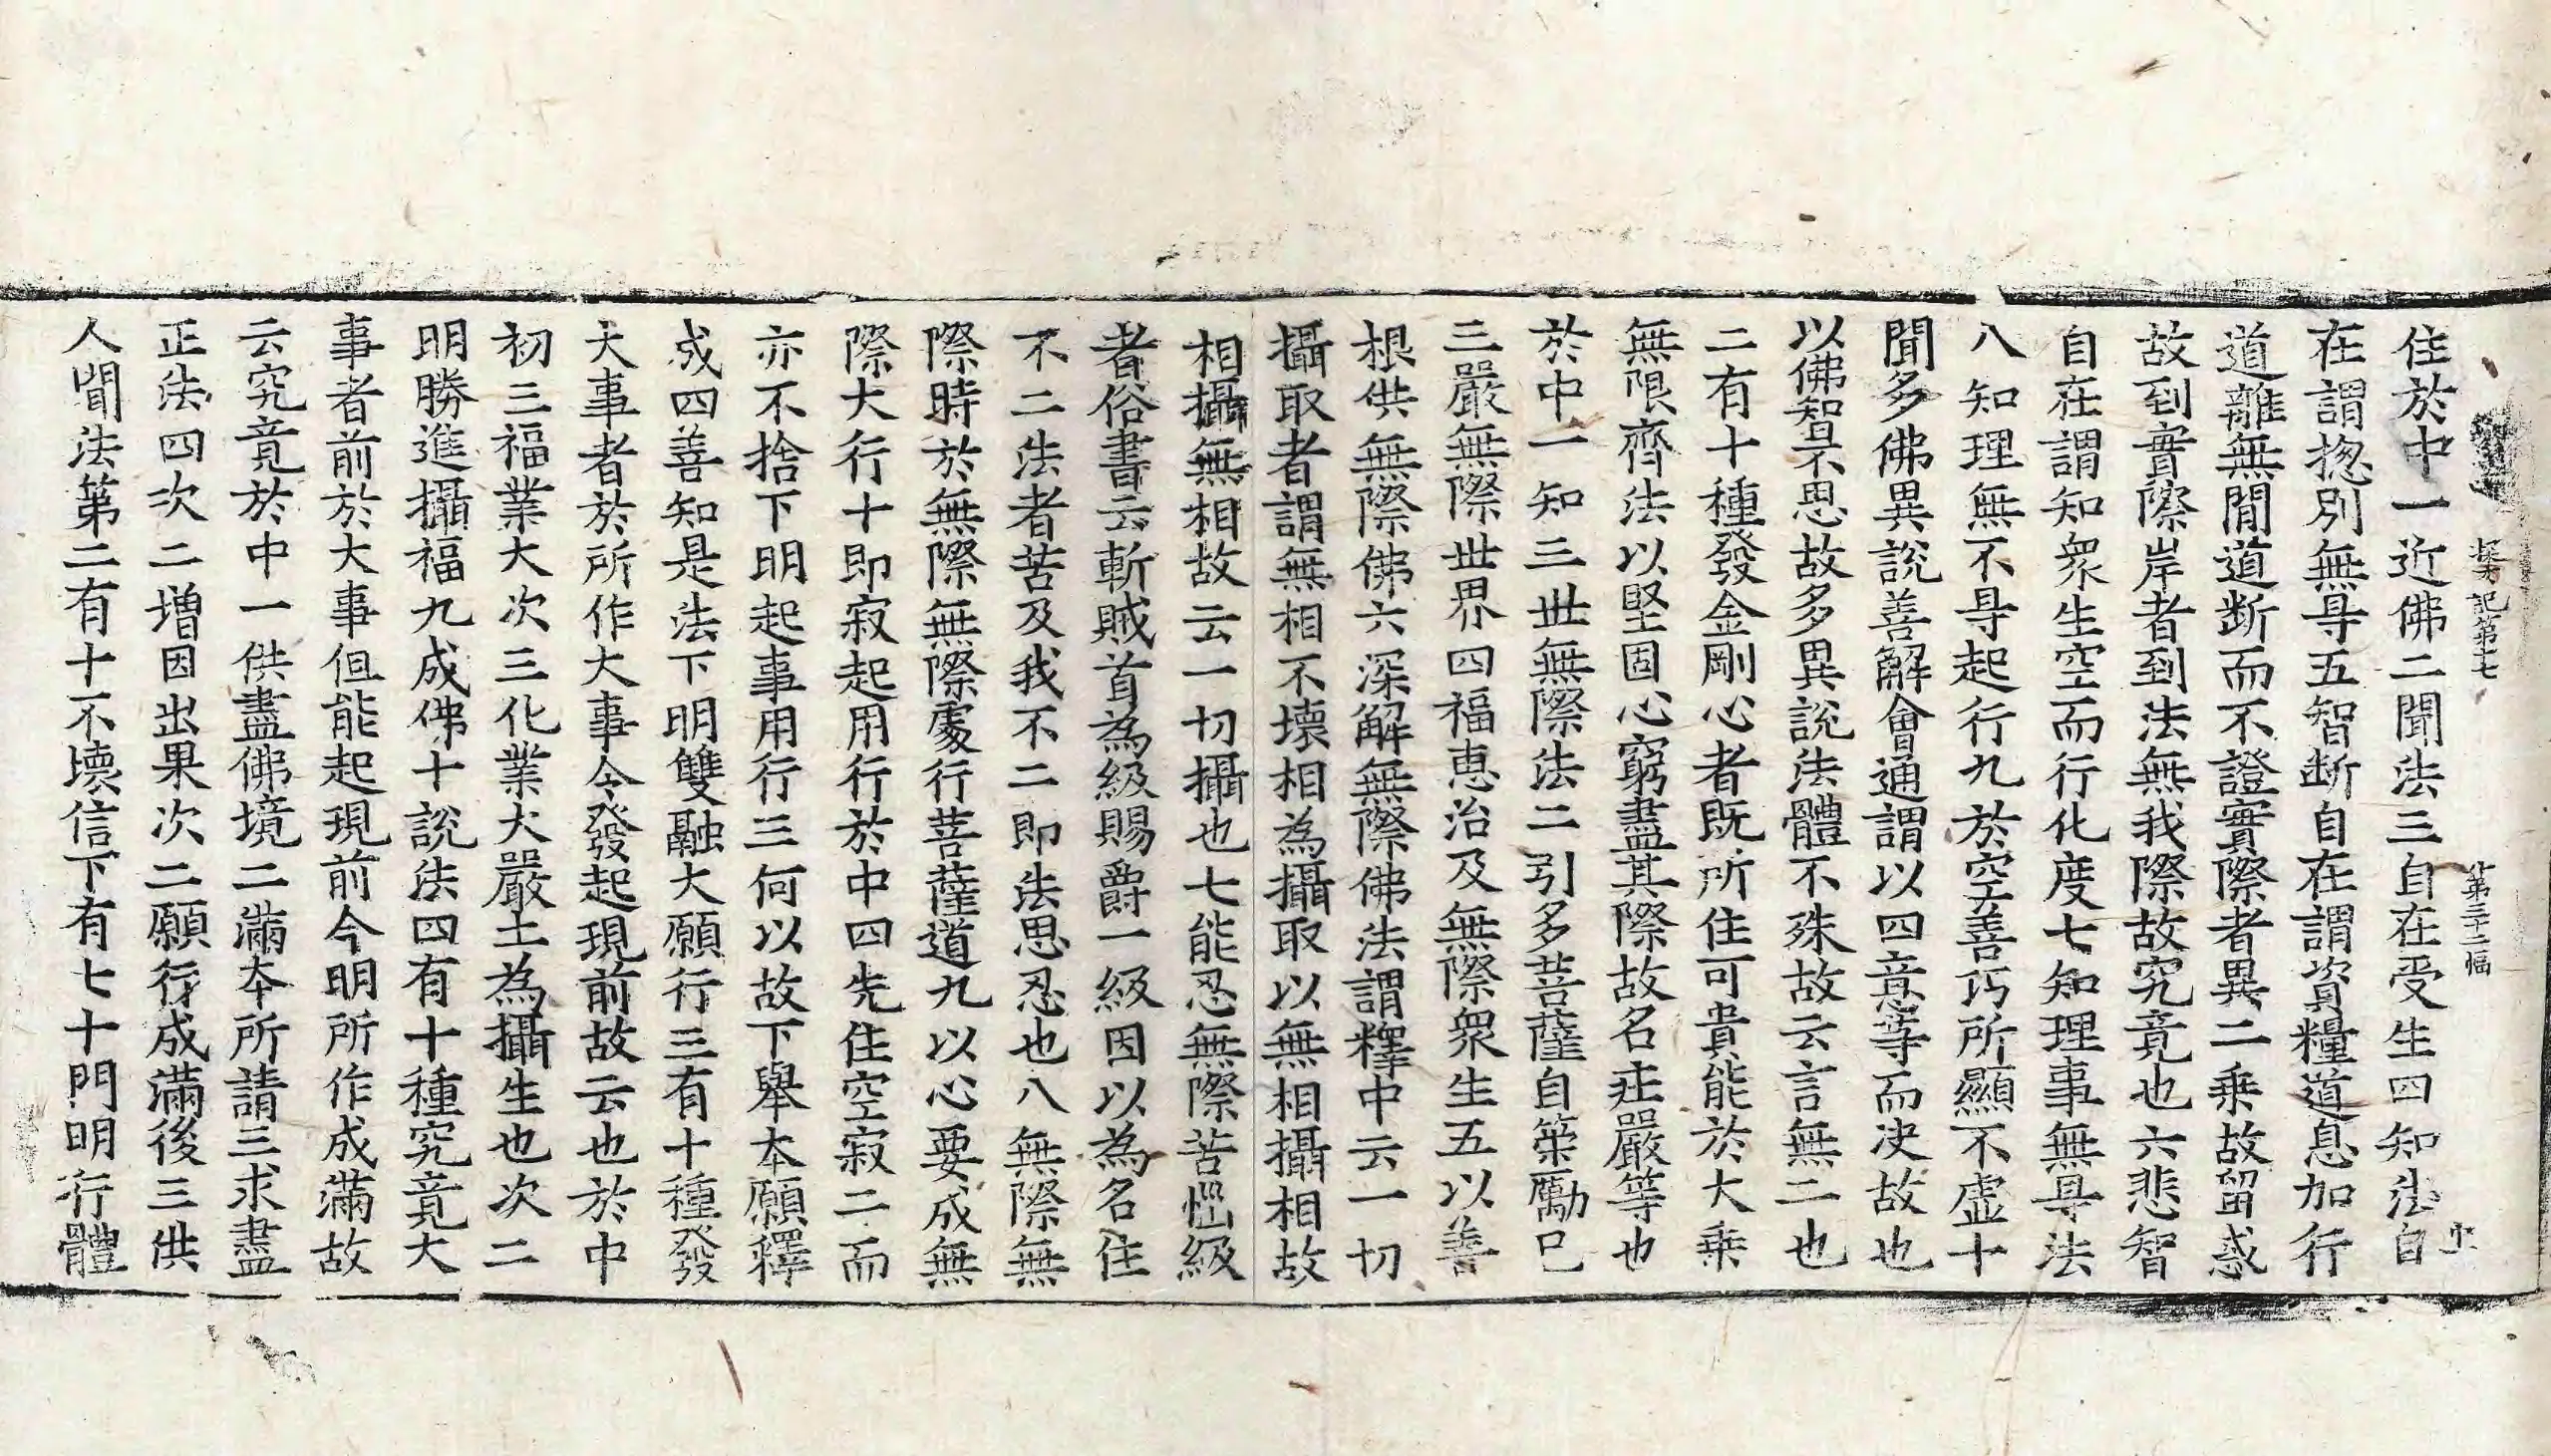 探玄記第十七　第三十二幅　宁
住於中一近佛二聞法三自在受生四知法自
在謂捴別無㝵五智断自在謂資糧道息加行
道離無閒道断而不證實際者異二乗故留惑
故到實際岸者到法無我際故究竟也六悲智
自在謂知衆生空而行化度七知理事無㝵法
八知理無不㝵起行九於空善巧所顯不虛十
聞多佛異說善解會通謂以四意等而决故也
以佛智不思故多異說法體不殊故云言無二也
二有十種發金剛心者既所住可貴能於大乗
無限齊法以堅固心窮盡其際故名庄嚴等也
於中一知三世無際法二引多菩薩自策勵巳
三嚴無際世界四福惠治及無際衆生五以善
根供無際佛六深解無際佛法謂釋中云一切
攝取者謂無相不壊相為攝取以無相攝相故
相攝無相故云一切攝也七能忍無際苦惱級
者俗書云斬賊首為級賜爵一級因以為名住
不二法者苦及我不二即法思忍也八無際無
際時於無際無際處行菩薩道九以心要成無
際大行十即寂起用行於中四先住空寂二而
亦不捨下明起事用行三何以故下舉本願釋
成四善知是法下明雙融大願行三有十種發
大事者於所作大事令發起現前故云也於中
初三福業大次三化業大嚴土為攝生也次二
明勝進攝福九成佛十說法四有十種究竟大
事者前於大事但能起現前今明所作成滿故
云究竟於中一供盡佛境二滿本所請三求盡
正法四次二增因出果次二願行成滿後三供
人聞法第二有十不壊信下有七十門明行體